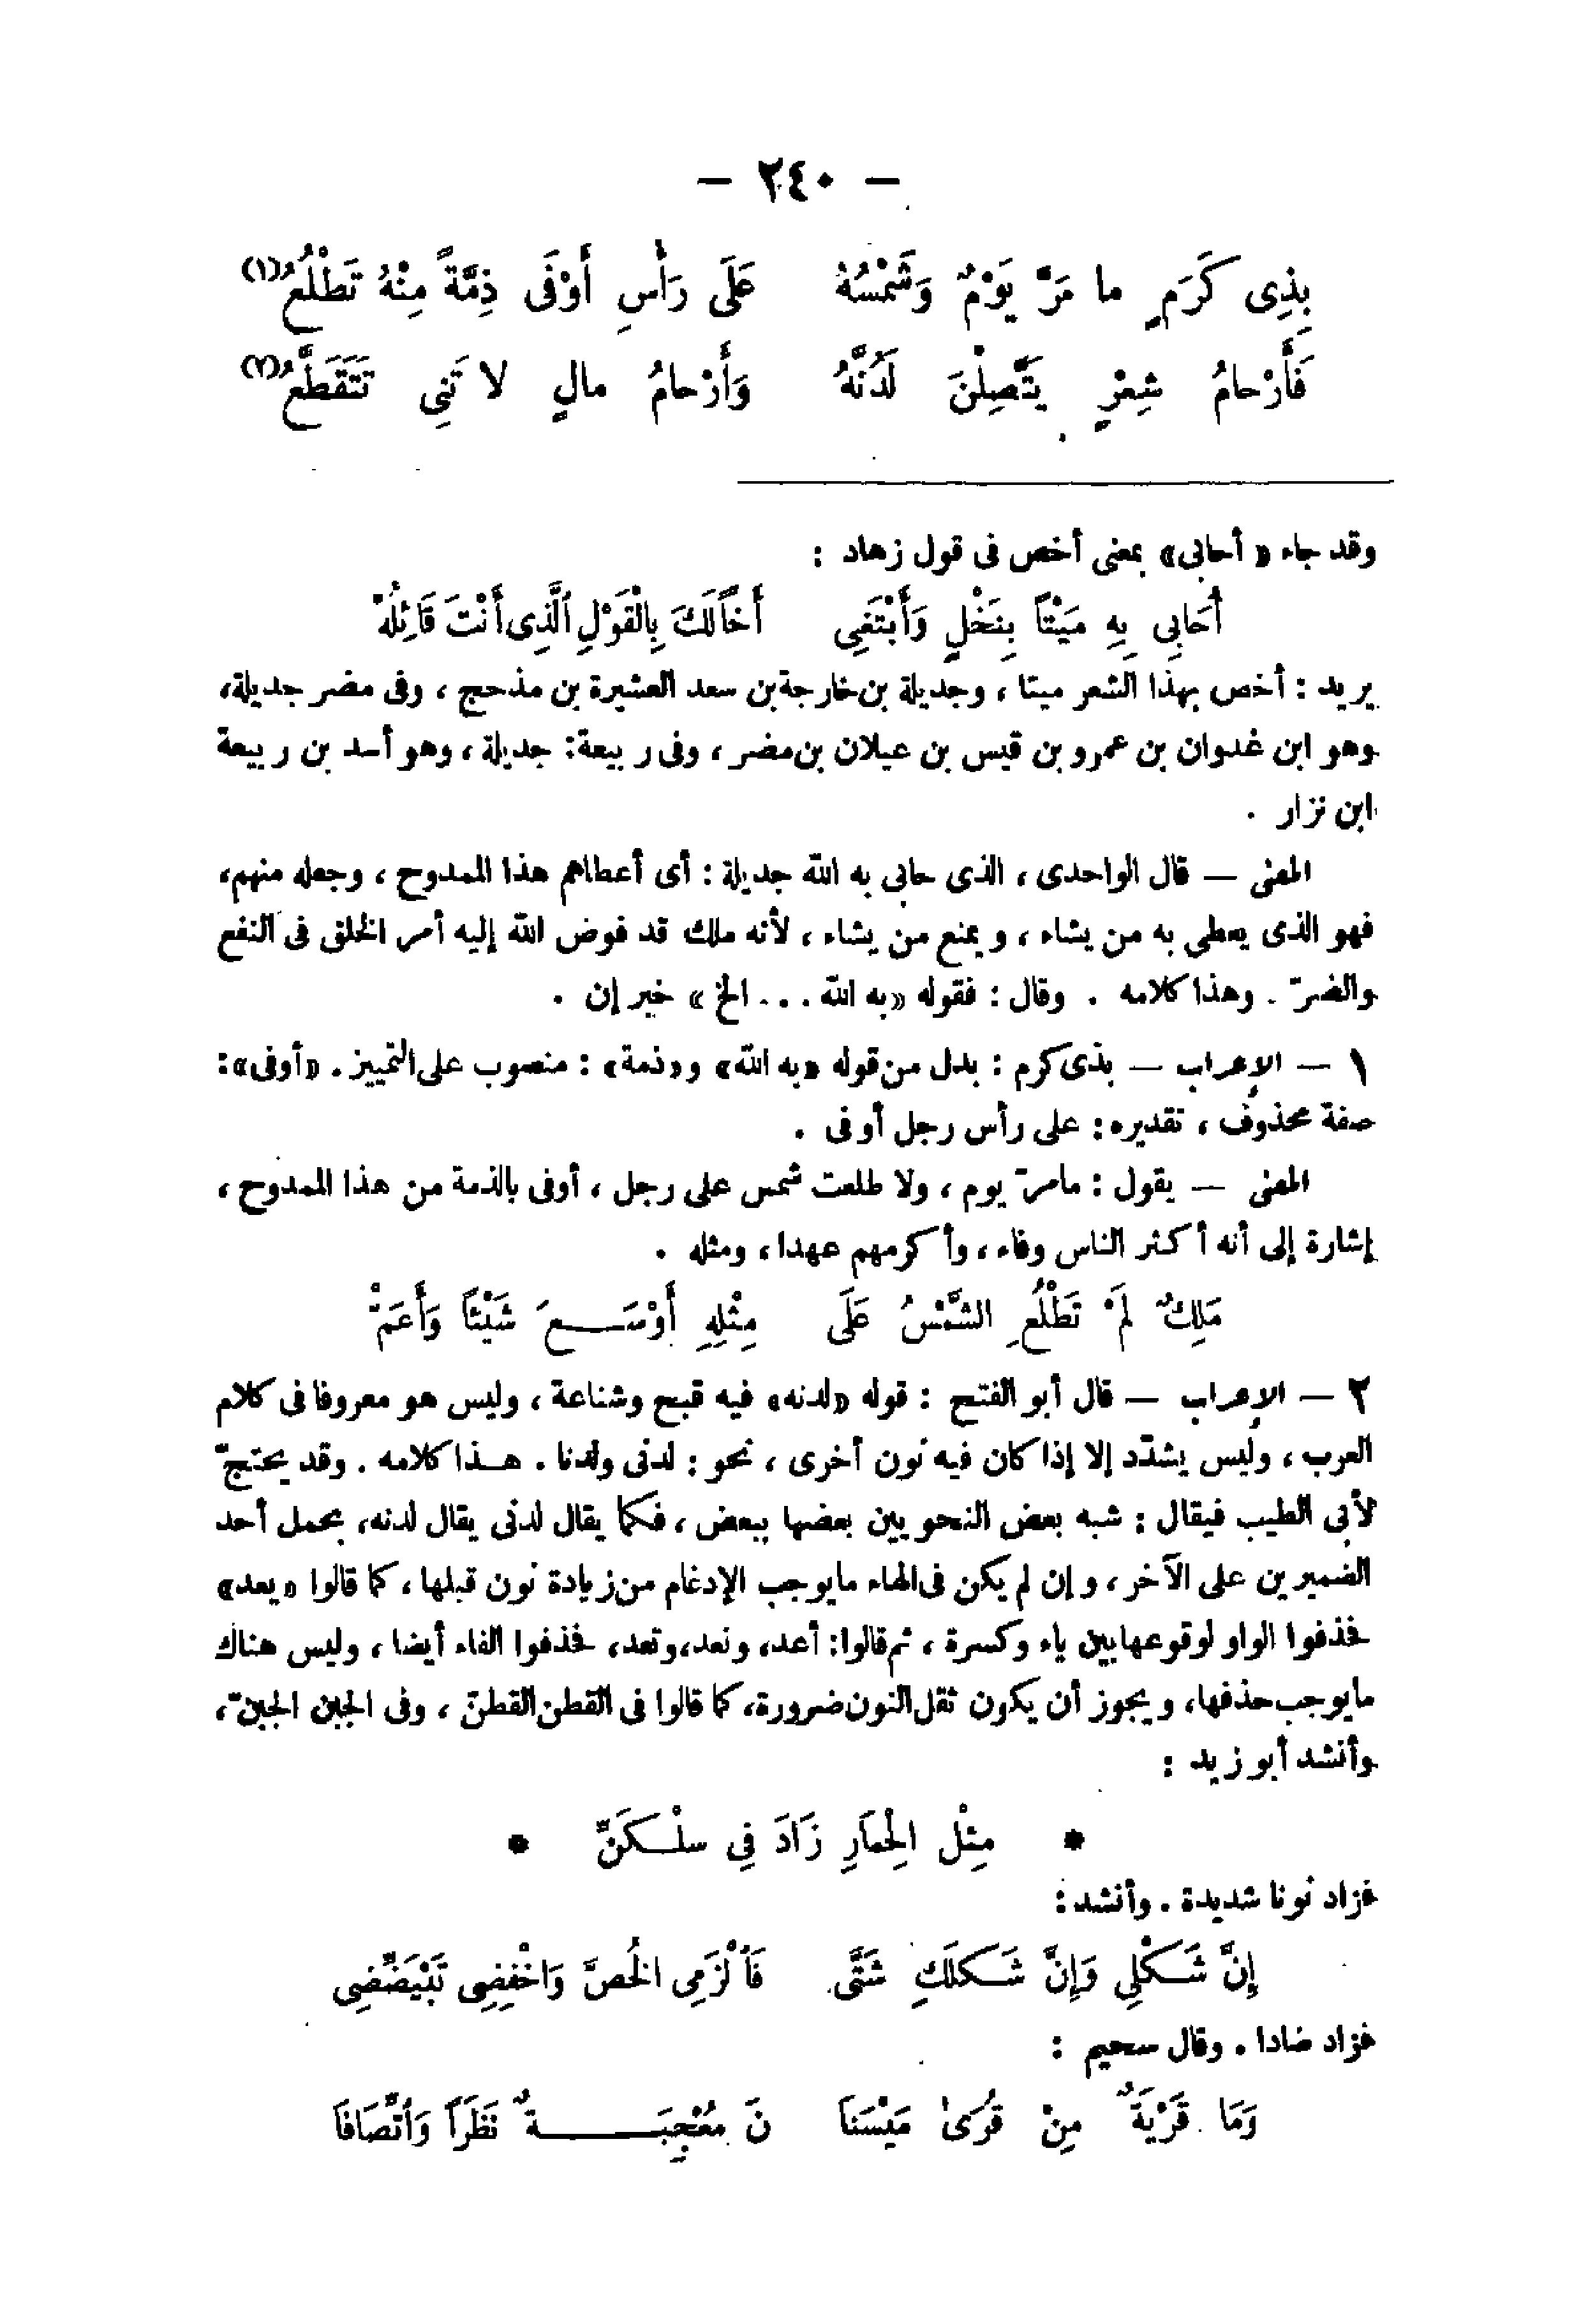 — ٢٤٠ —
بِذِى كَرَمٍ ما مَرَّ يَوْمٌ وَشَمْسُهُ عَلَى رَأْسِ أَوْفَى ذِمَّةً مِنْهُ تَطْلُعُ(١)
فَأَرْحامُ شِعْرٍ يَتَّصِلْنَ لَدُنَّهُ وَأَرْحامُ مالٍ لا تَنِى تَتَقَطَّعُ(٢)
وقد جاء «أحابى» بمعنى أخص فى قول زهاد :
أُحَابِى بِهِ مَيْتًا بِنَخْلٍ وَأَبْتَغِى أَخًا لَكَ بِالْقَوْلِ الَّذِى أَنْتَ قَائِلُهْ
يريد : أخص بهذا الشعر ميتا ، وجديلة بن خارجة بن سعد العشيرة بن مذحج ، وفى مضر جديلة،
وهو ابن غدوان بن عمرو بن قيس بن عيلان بن مضر ، وفى ربيعة: جديلة ، وهو أسد بن ربيعة
ابن نزار .
المعنى — قال الواحدى ، الذى حابى به الله جديلة : أى أعطاهم هذا الممدوح ، وجعله منهم،
فهو الذى يعطى به من يشاء ، ويمنع من يشاء ، لأنه ملك قد فوض الله إليه أمر الخلق فى النفع
والضرّ . وهذا كلامه . وقال : فقوله «به الله . . . الخ» خبر إن .
١ — الإعراب — بذى كرم : بدل من قوله «به الله» و«ذمة» : منصوب على التمييز. «أوفى»:
صفة محذوف ، تقديره: على رأس رجل أوفى .
المعنى — يقول : مامرّ يوم ، ولا طلعت شمس على رجل ، أوفى بالذمة من هذا الممدوح ،
إشارة إلى أنه أكثر الناس وفاء ، وأكرمهم عهدا ، ومثله .
مَلِكٌ لَمْ تَطْلُعِ الشَّمْسُ عَلَى مِثْلِهِ أَوْسَـــعَ شَيْئًا وَأَعَمْ
٢ — الإعراب — قال أبو الفتح : قوله «لدنه» فيه قبح وشناعة ، وليس هو معروفا فى كلام
العرب ، وليس يشدّد إلا إذا كان فيه نون أخرى ، نحو : لدنى ولدنا . هــذا كلامه . وقد يحتجّ
لأبى الطيب فيقال : شبه بعض النحويين بعضها ببعض ، فكما يقال لدنى يقال لدنه، بحمل أحد
الضميرين على الآخر ، وإن لم يكن فى الهاء مايوجب الإدغام من زيادة نون قبلها ، كما قالوا «يعد»
فحذفوا الواو لوقوعها بين ياء وكسرة ، ثم قالوا: أعد، ونعد، وتعد، فحذفوا الفاء أيضا ، وليس هناك
مايوجب حذفها، ويجوز أن يكون ثقل النون ضرورة، كما قالوا فى القطن القطنّ ، وفى الجبن الجبنّ ،
وأنشد أبو زيد :
* مِثْل الْحِمَارِ زَادَ فِى سلْــكَنِّ *
فزاد نونا شديدة . وأنشد :
إِنَّ شَــكْلِى وَإِنَّ شَــكلَكِ شَتَّى فَالْزَمِى الْخُصَّ وَاخْفِضِى تَبْيَضِّضِى
فزاد ضادا . وقال سحيم :
وَمَا قَرْيَةٌ مِنْ قُرَى مَيْسَنَا نَ مُعْجِبَـــــةٌ نَظَرًا وَاتِّصَافَا